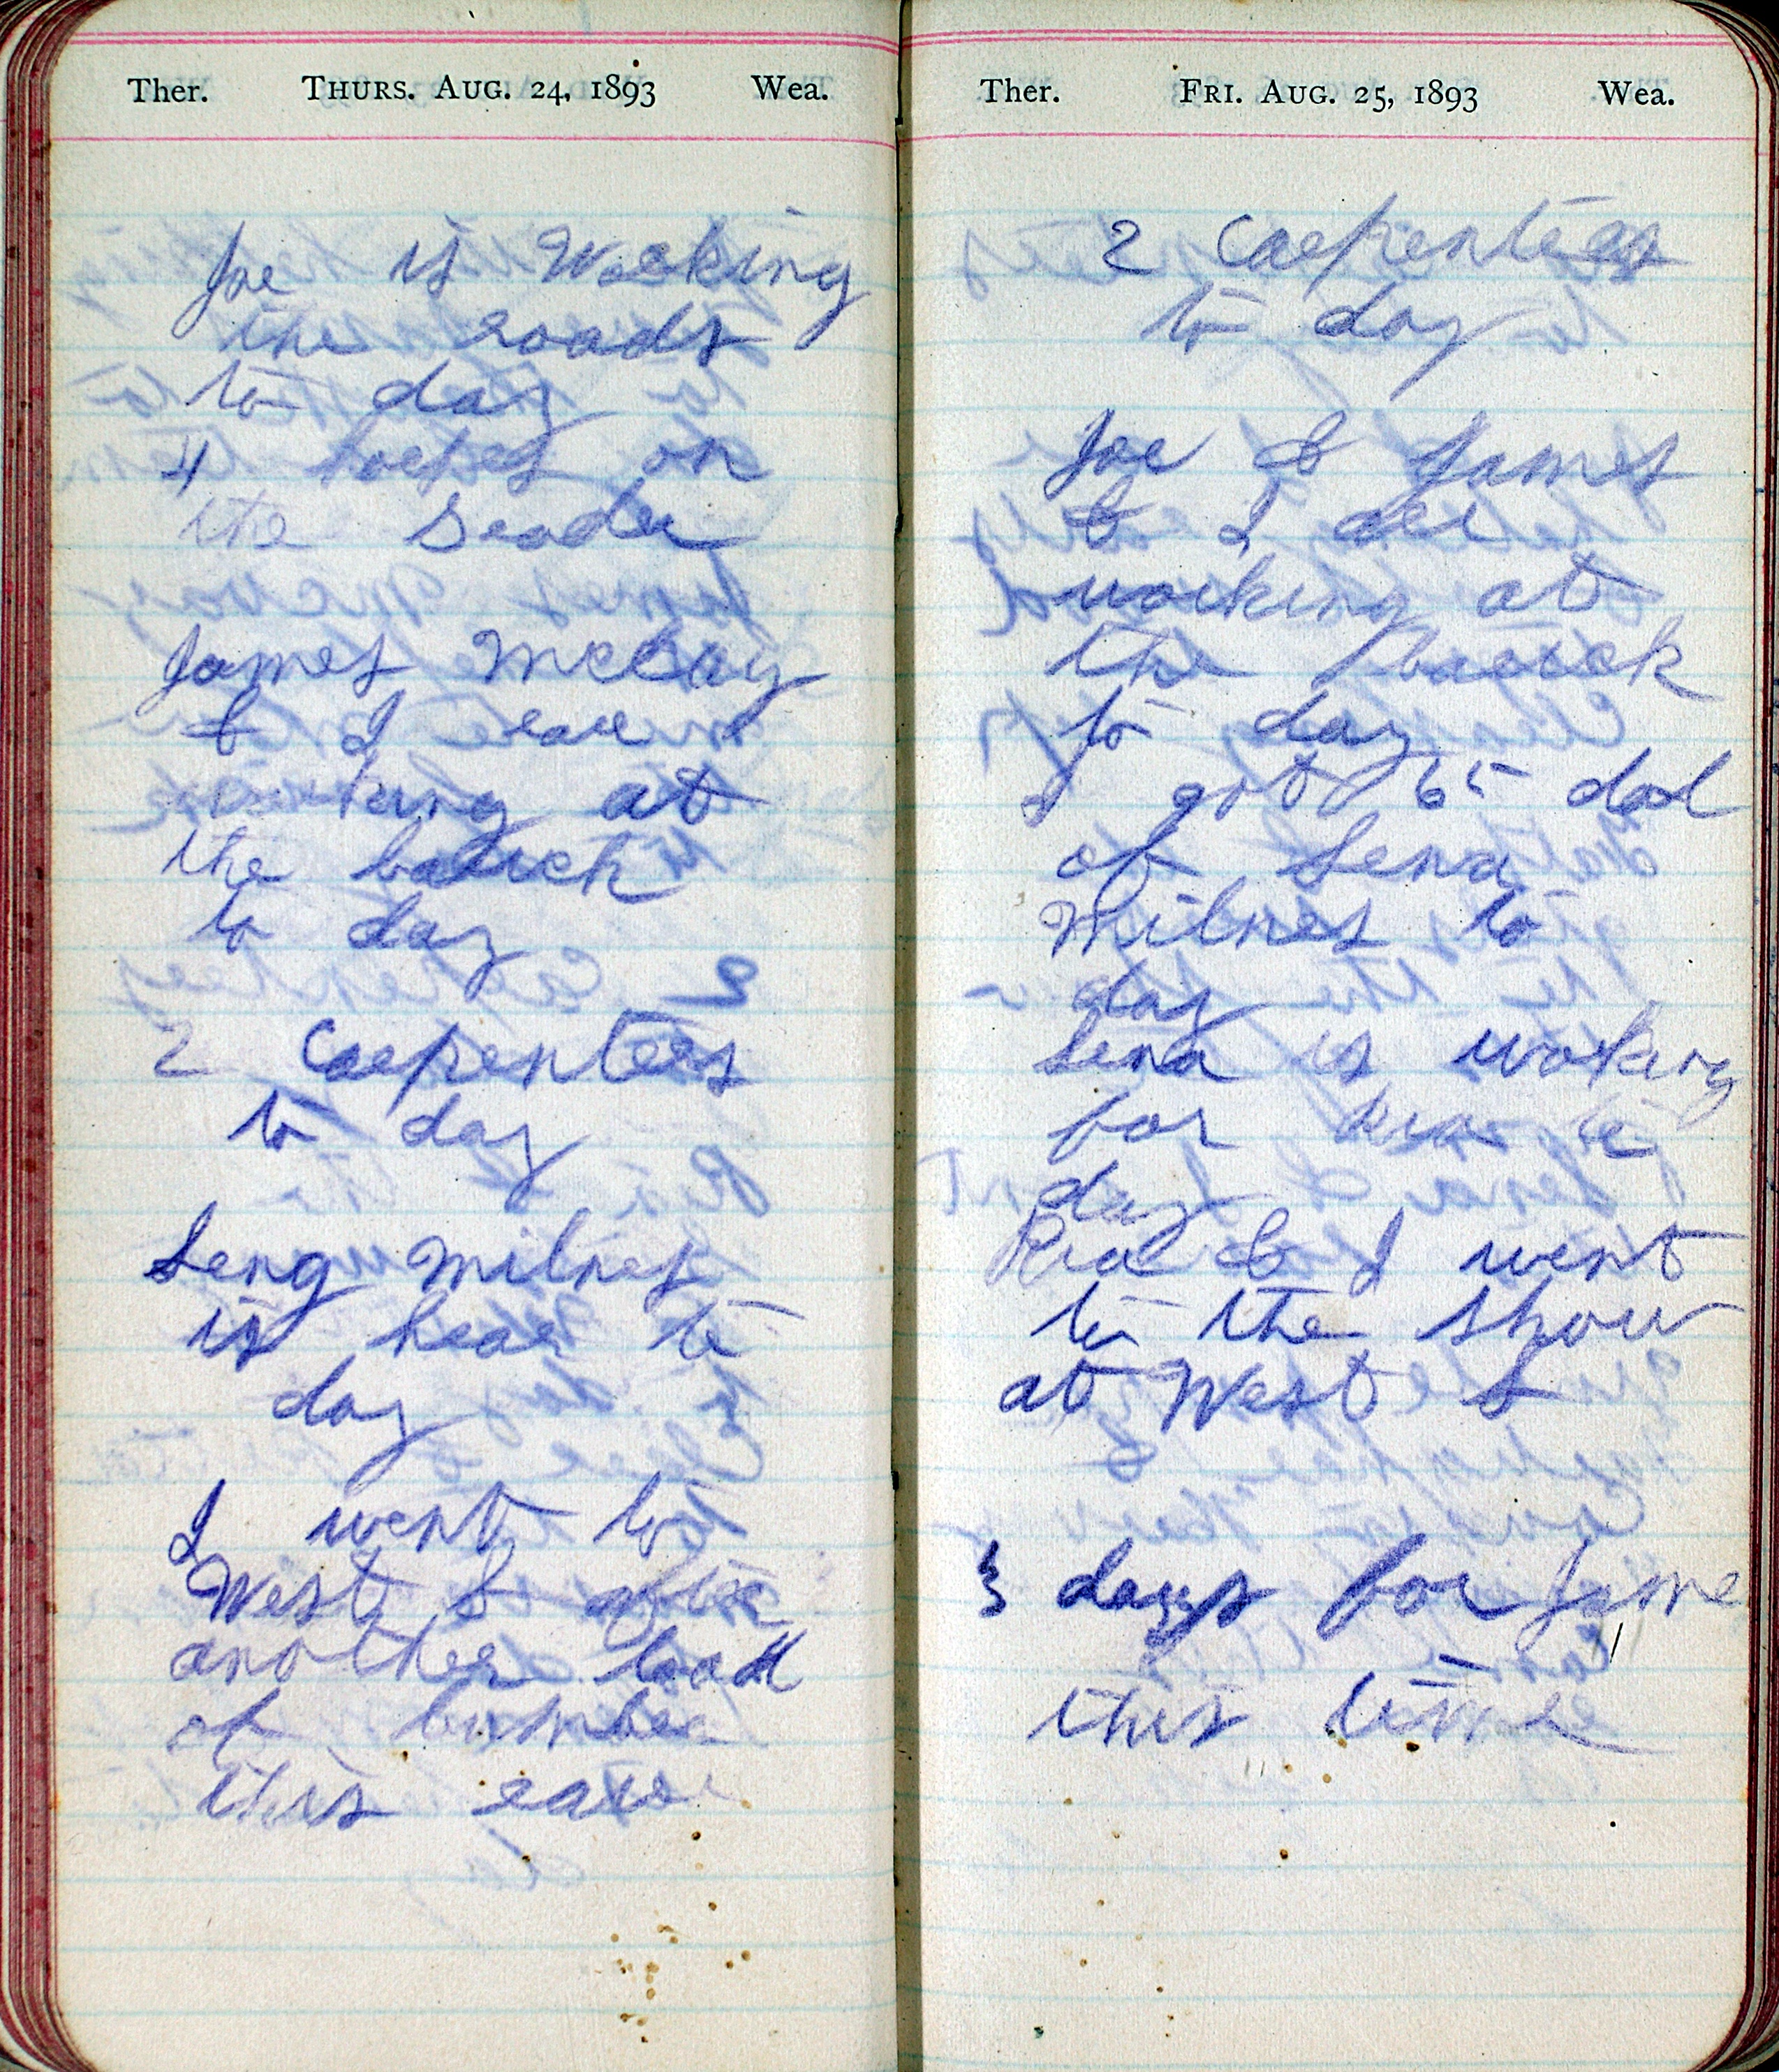 Ther. THURS. AUG. 24, 1893 Wea.
Joe is Working
the roads
to day
4 horses on
the Scader
James McCay
& I are
working at
the barrch
to day
2 Carpenters
to day
Seng Milnes
is hear to
day
I went to
West &
another load
of lumber
this eave
Ther. FRI. AUG. 25, 1893 Wea.
2 Carpenters
to day
Joe & James
& I are
working at
the barrck
to day
I got 65 dol
of Sena
Milnes to
day
Sena is working
for Ria to
day
Ria & I went
to the show
at West &
3 days for Jame
this time